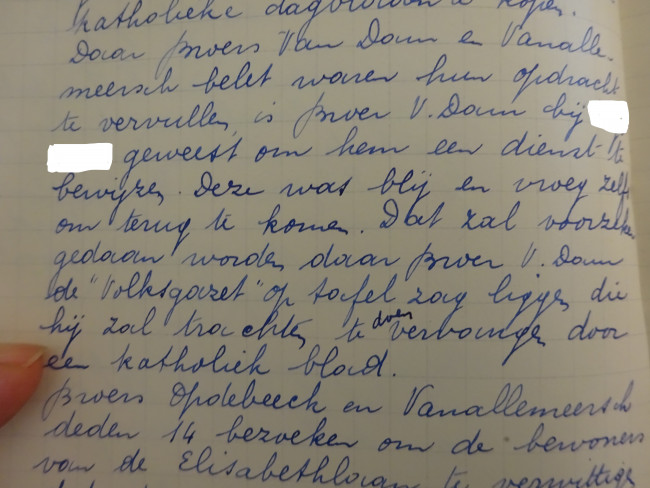 katholieke dagbladen te kopen.
Daar Broers Van Dam en Vanalle-
meersch belet waren hun opdracht
te vervullen, is Broer V. Dam bij
geweest om hem een dienst te
bewijzen. Deze was blij en vroeg zelf
om terug te komen. Dat zal voorzeker
gedaan worden daar Broer V. Dam
de "Volksgazet" op tafel zag liggen die
hij zal trachten te doen vervangen door
een katholiek blad.
Broers Opdebeeck en Vanallemeersch
deden 14 bezoeken om de bewoners
van de Elisabethlaan te verwittigen